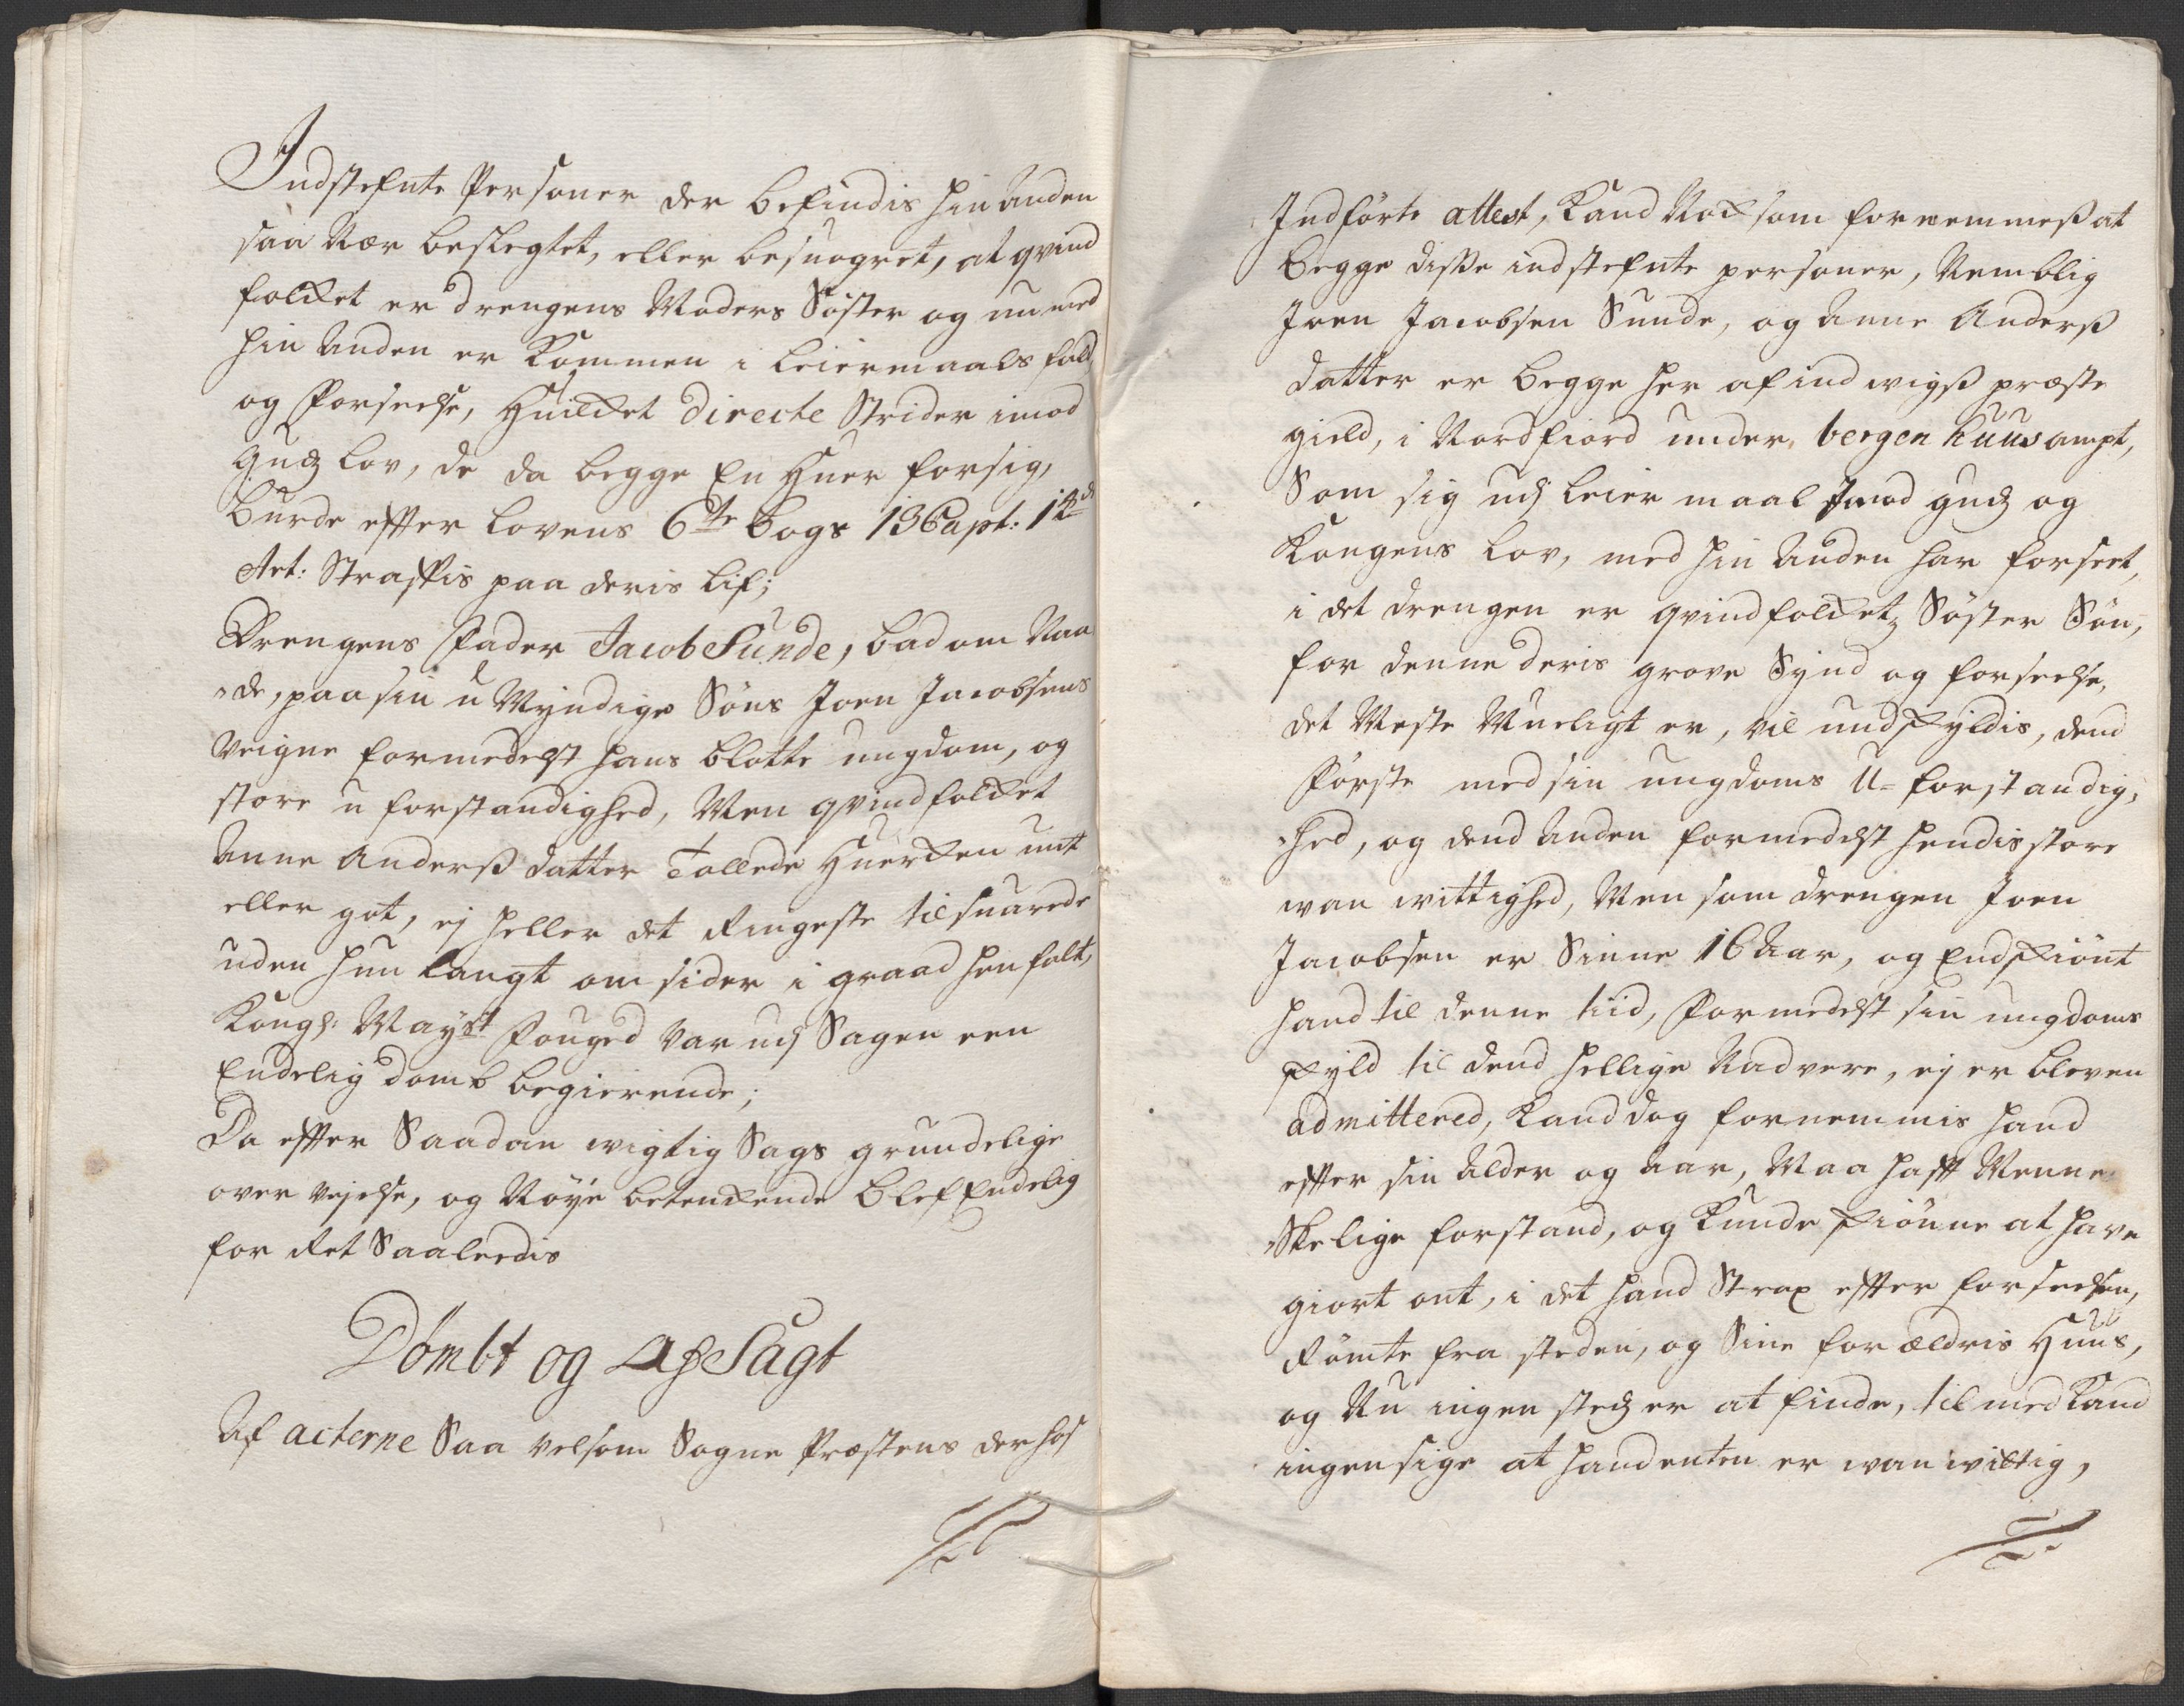 Indstefnte Personer der befindis hin Anden
saa Nær beslegtet, eller besuogret, at qvind
folchet er drengens Moders Søster og nu med
hin Anden er Kommen i leiermaals fald
og Forseelse, Huilchet directe Strider imod
Gudz lov, de da begge En Huer forsig,
burde effter lovens 6te bogs 13 Capt: 14de
Art: Straffis paa deris lif;
Drengens Fader Jacob Sunde, bad om Naa
de, paa sin u Myndige Søns Joen Jacobsens
Veigne formedelst hans blotte ungdom, og
store u forstandighed, Men qvindfolchet
Anne Anderß datter Tallede Huerchen unt
eller got, ej heller det Ringeste tilsuarede
uden hun langt om sider i graad henfalt,
Kongl: Mayst Fouged Var udj Sagen een
Endelig domb begierende;
Da effter Saadan wigtig Sags grundelige
over vejelse, og Nøye betenchende blef Endelig
for Ret Saaledis
Dømbt og AfSagt
Af acterne Saa velsom Sogne Præstens der hos
Indførte attest, Kand Noch som fornemmeß at
begge diße indstefnte personer, Nemblig
Joen Jacobsen Sunde, og Anne Anderß
datter er begge her af indwigß præste
gield, i Nordfiord under, bergen huus ampt,
Som sig udj leier maal Imod gudz og
Kongens lov, med hin Anden har forseet,
i det drengen er qvindfolchetz Søster Søn,
for denne deris grove Synd og forseelse,
det Meste Mueligt er, vil undschyldis, dend
Første med sin ungdoms U-forstandig,
hed, og dend Anden formedelst hendis store
wan wittighed, Men som drengen Joen
Jacobsen er Sinne 16 Aar, og Endschiønt
hand til denne tiid, Formedelst sin ungdoms
schyld til dend hellige Nadvere, ej er bleven
admittered, Kand dog fornemmis hand
effter sin Alder og Aar, Maa hafft Menne
Skelige forstand, og Kunde schiønne at have
giort ont, i det hand Strax effter forseelsen,
Rømte fra steden, og Sine forældris Huus,
og Nu ingen stedz er at finde, til med Kand
ingen sige at hand enten er wan wittig,